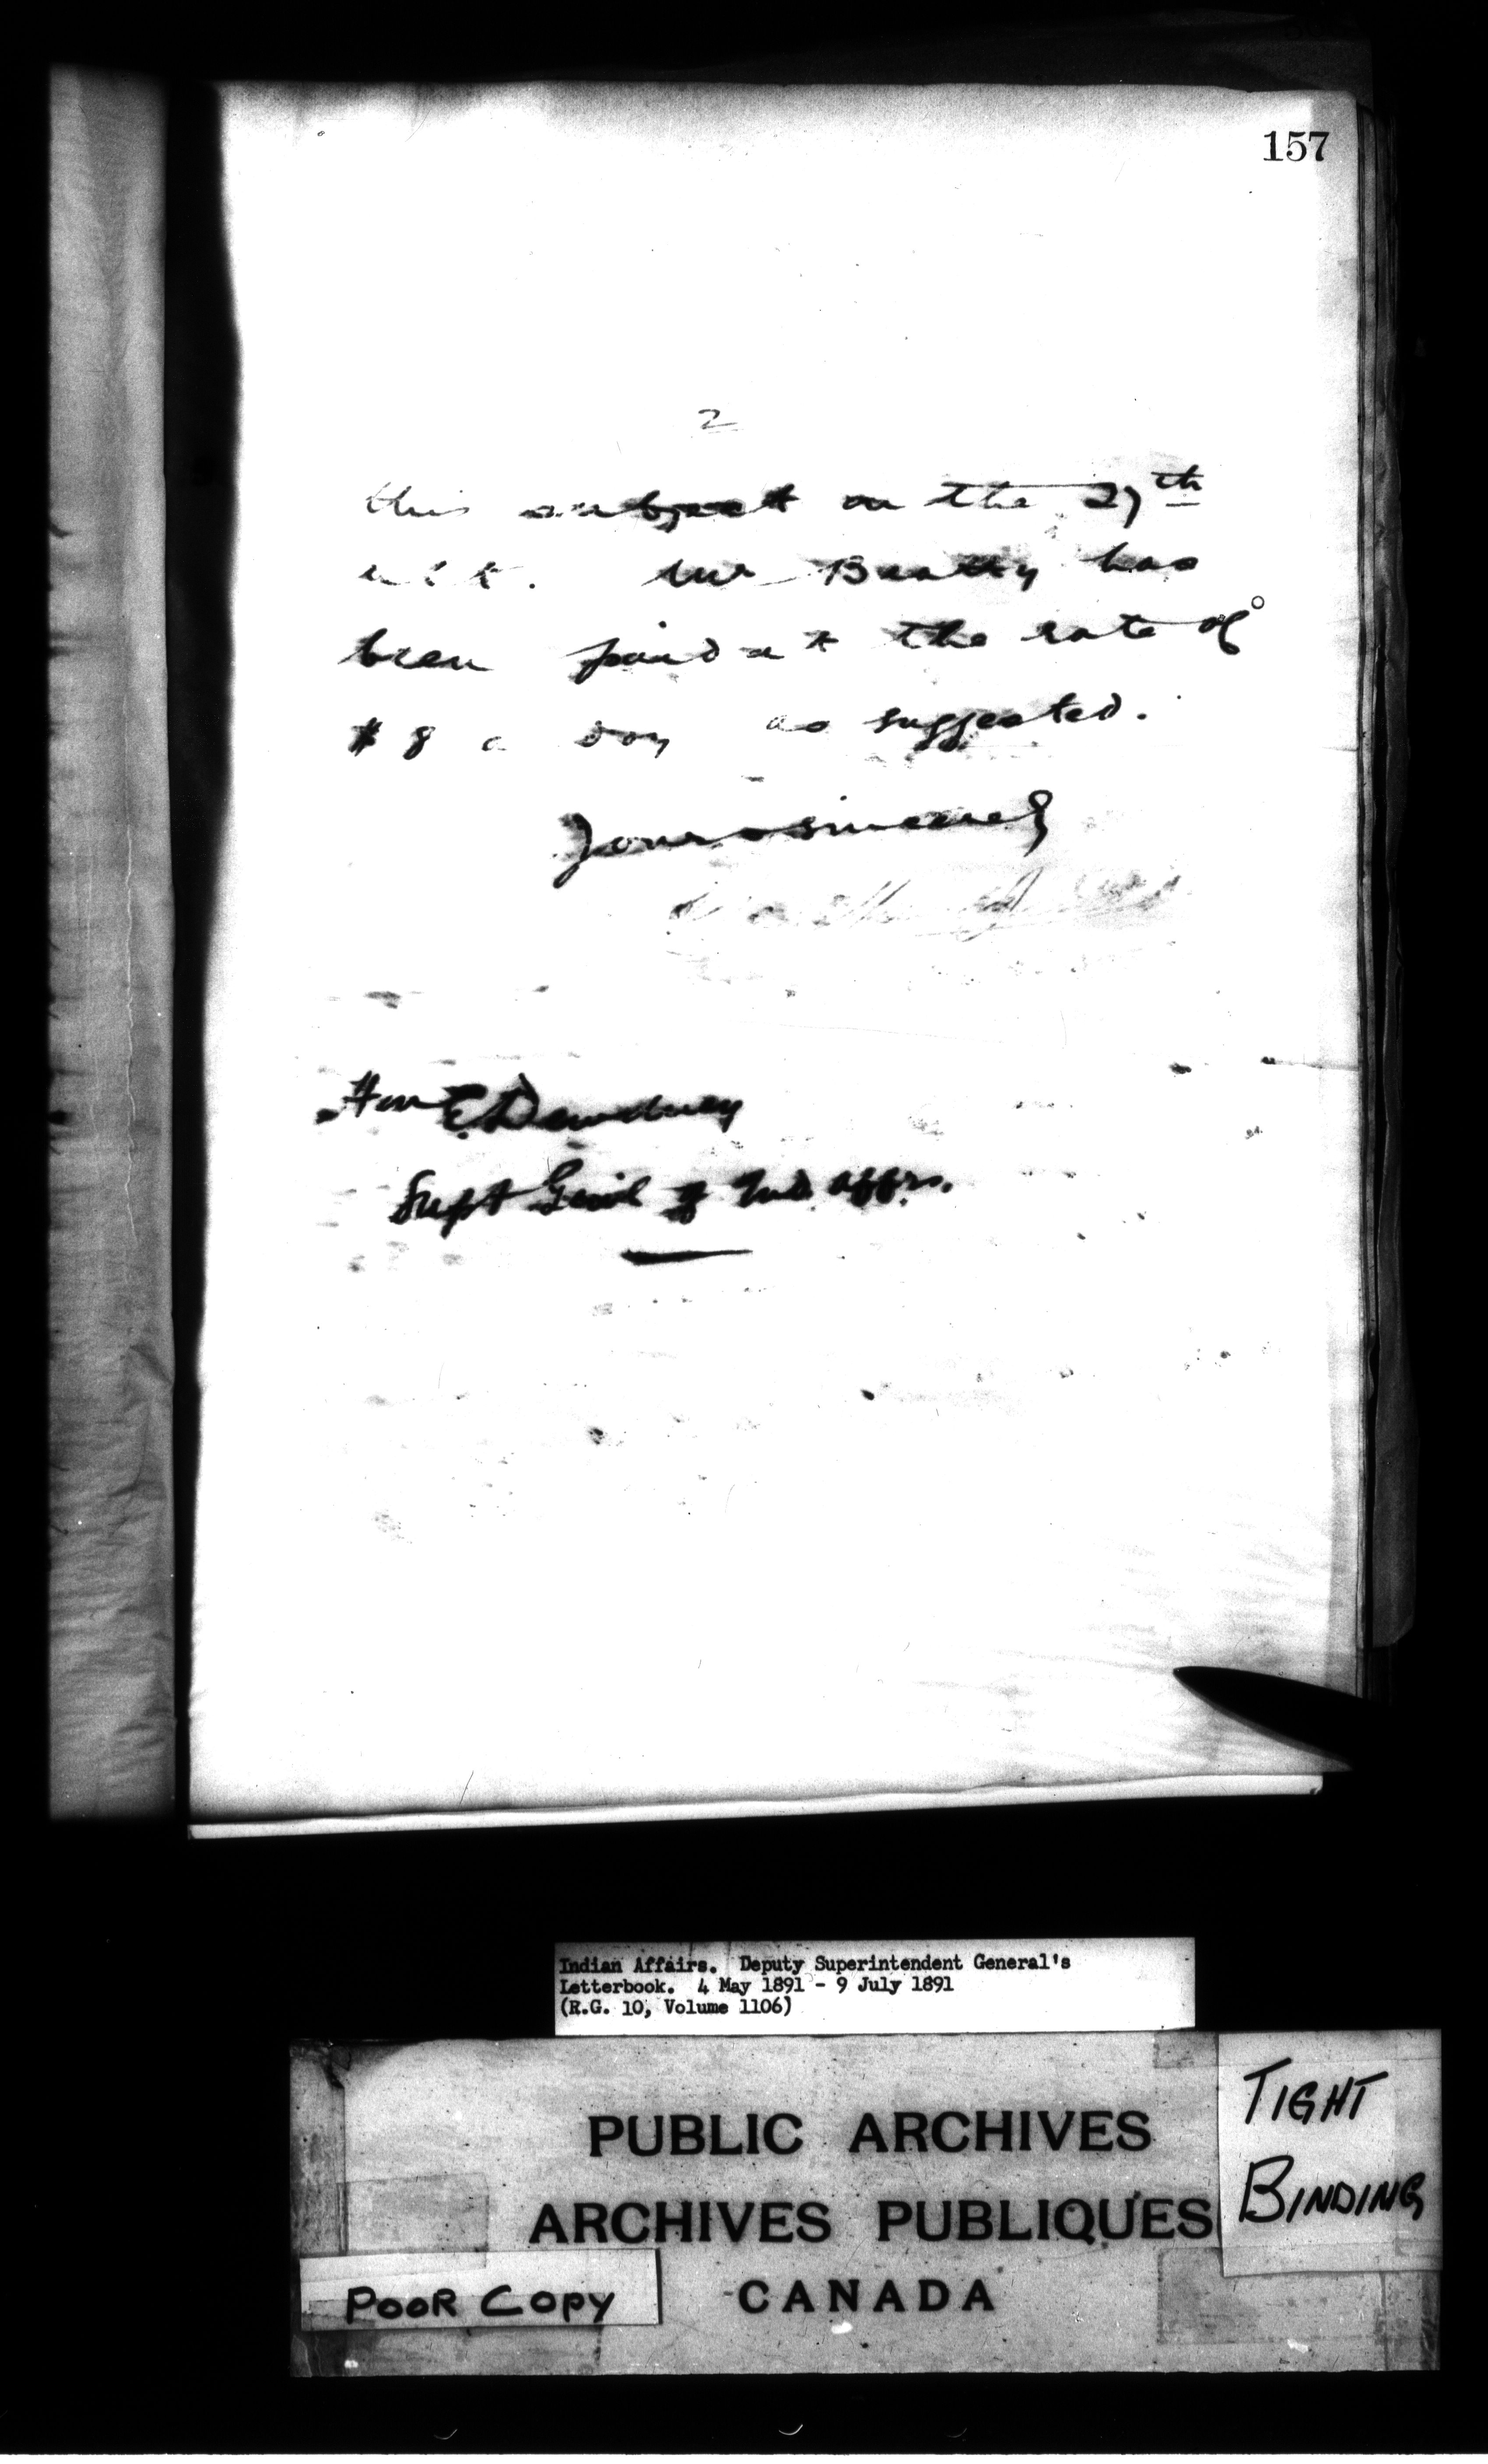 157
2
this subject on the 27th
ult. Mr Beatty has
been paid at the rate of
$8 a day as suggested.
Yours sincerely
Hon E. Dewdney
Supt Genl of Ind. Affrs.
Indian Affairs. Deputy Superintendent General's
Letterbook. 4 May 1891 - 9 July 1891
(R.G. 10, Volume 1106)
PUBLIC ARCHIVES
ARCHIVES PUBLIQUES
CANADA
TIGHT
BINDING
POOR COPY